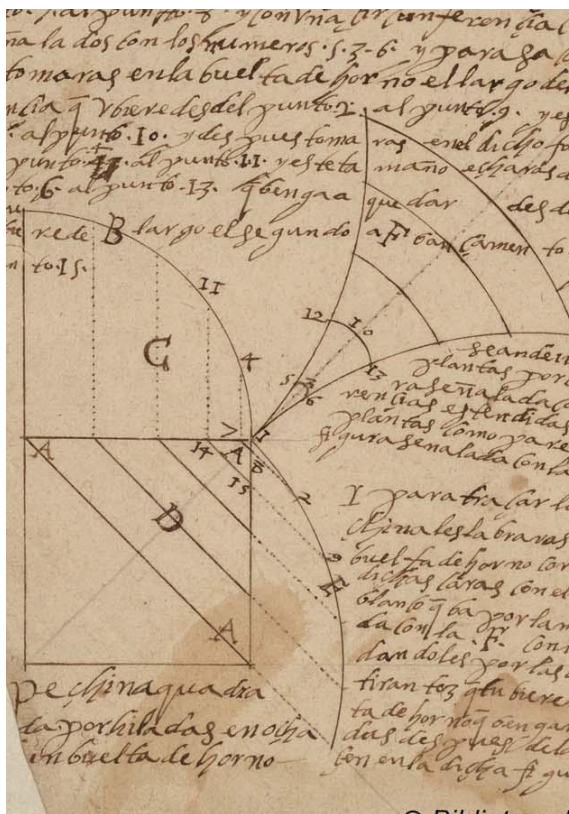 al punto · 8 · y con una circunferencia
ña la dos con los numeros · 5 · 3 - 6 · y para sa
tomaras en la buelta de horno el largo de
ncia q̄ ubieredes del punto · 2 · al punto · 9 · y es
· al punto · 10 · y despues toma ras en el dicho fo
punto · al punto · 11 · y este ta maño echaras d
to · 6 · al punto · 13 · q̄ benga a que dar desde
rede B largo el segundo a F bançamento
n to · 15 ·
11
C
12 10
4
13
5 3 6
seande
plantas por
ra señalada co
rencias estendidas
plantas como pare
figura señalada con la
7 1
A 14 A 8
15
2
D
9
E
A
I para traçar la
china les labraras
buelta de horno con
dichas caras con el
blanco q̄ ba por la m
da con la · F · con
dandoles por las
tirantez q̄ tubiere
ta de horno q̄
dus despues de l
ten en la dicha fi gu
pechina quadra
da por hiladas en ocha
in buelta de horno